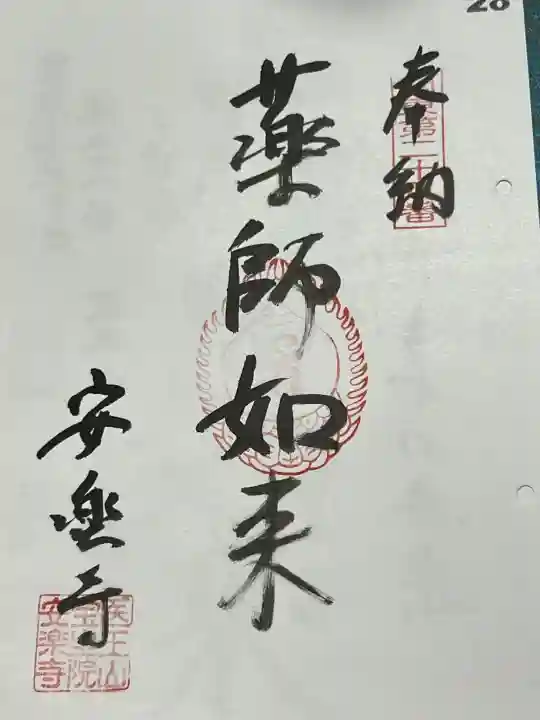 奉納
薬師如来
安楽寺
医王山
安楽寺
28